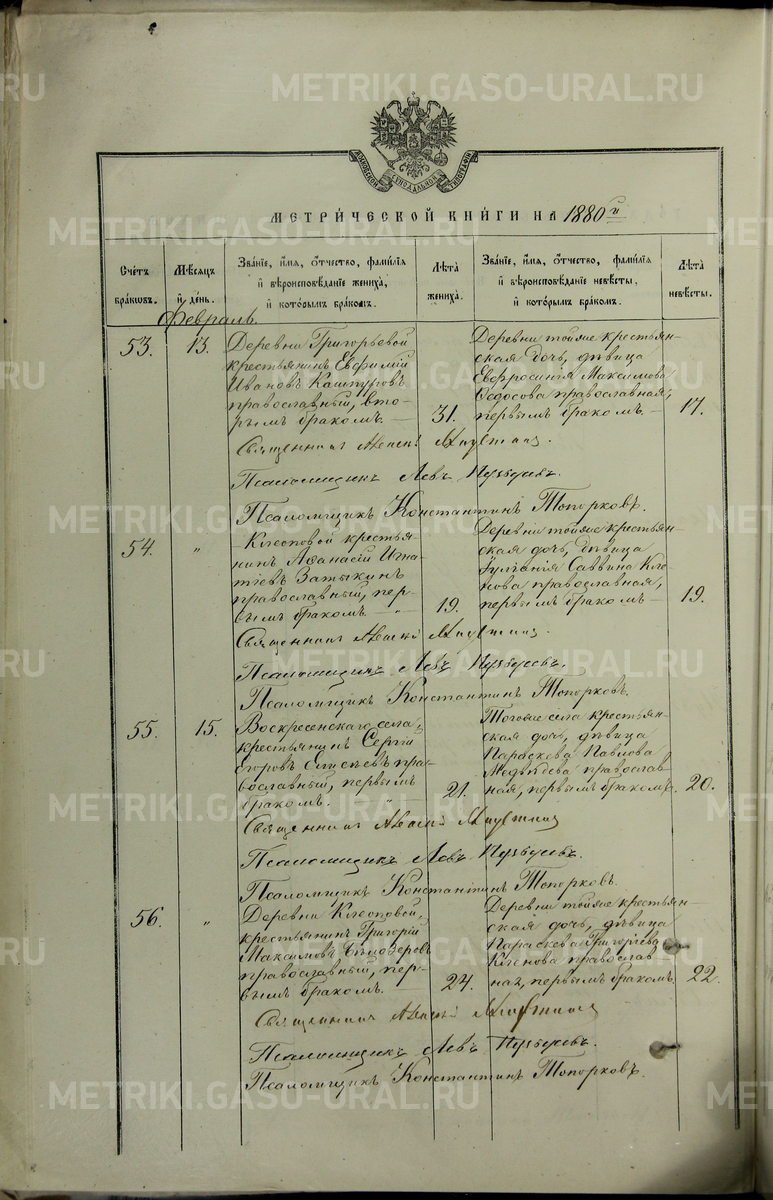 METRIKI.GASO-URAL.RU
МОСКОВСКОЙ СѴНОДАЛЬНОЙ ТИПОГРАФІИ
МЕТРИ́ЧЕСКОЙ КНИ́ГИ НА 1880 г.
Сче́тъ бра́ковъ.
Мѣ́сяцъ и҆ де́нь.
Зва́нїе, и҆́мя, ѻ҆́тчество, фами́лїя
и҆ вѣроисповѣ́данїе жениха̀,
и҆ кото́рымъ бра́комъ.
Лѣ́та жениха̀.
Зва́нїе, и҆́мя, ѻ҆́тчество, фами́лїя
и҆ вѣроисповѣ́данїе невѣ́сты,
и҆ кото́рымъ бра́комъ.
Лѣ́та невѣ́сты.
Февраль.
53.
13.
Деревни Григорьевой
крестьянинъ Евфимій
Ивановъ
православный, вто-
рымъ бракомъ.
31.
Деревни тойже крестьян-
ская дочь, дѣвица
Евфросинія Максимова
Ѳедосова православная,
первымъ бракомъ.
17.
Священникъ
Псаломщикъ Левъ
Псаломщикъ Константинъ Топорковъ.
54.
"
крестья-
нинъ Аѳанасій Игна-
тіевъ Затыкинъ
православный, пер-
вымъ бракомъ
19.
Деревни тойже крестьян-
ская дочь, дѣвица
Іуліанія Саввина
православная,
первымъ бракомъ
19.
Священникъ
Псаломщикъ Левъ
Псаломщикъ Константинъ Топорковъ.
55.
15.
Воскресенскаго села,
крестьянинъ Сергій
Егоровъ Елисѣевъ пра-
вославный, первымъ
бракомъ.
21.
Тогоже села крестьян-
ская дочь, дѣвица
Параскева Павлова
Медвѣдева православ-
ная, первымъ бракомъ.
20.
Священникъ
Псаломщикъ Левъ
Псаломщикъ Константинъ Топорковъ.
56.
"
Деревни
крестьянинъ Григорій
Максимовъ Бѣлозеровъ
православный, пер-
вымъ бракомъ.
24.
Деревни тойже крестьян-
ская дочь, дѣвица
Параскева Григоріева
православ-
ная, первымъ бракомъ
22.
Священникъ
Псаломщикъ Левъ
Псаломщикъ Константинъ Топорковъ.